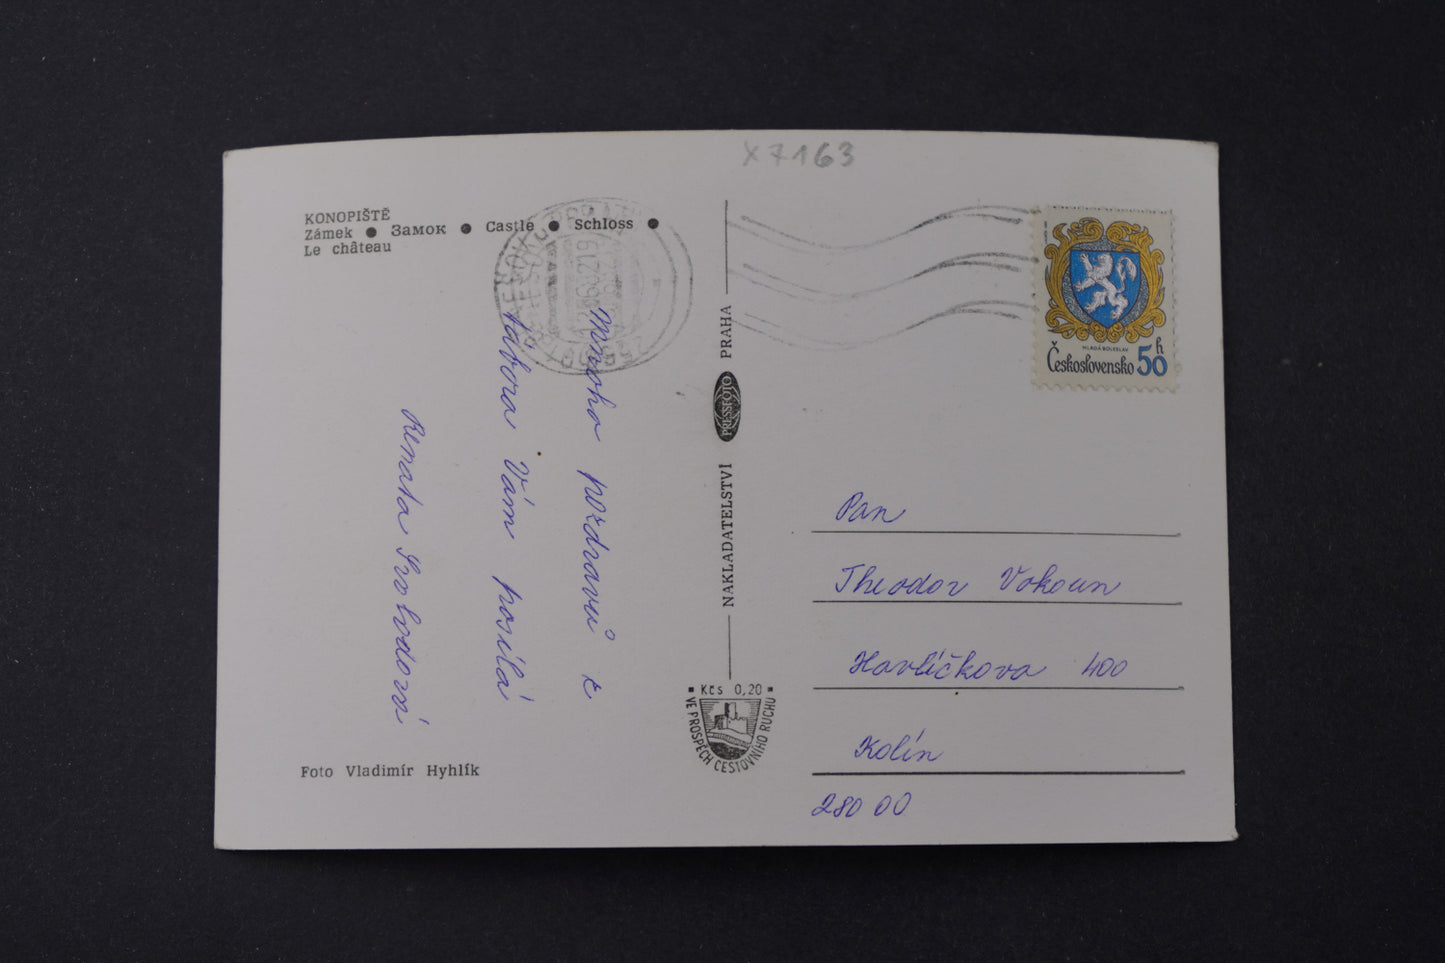 X7163
KONOPIŠTĚ
Zámek ● Замок ● Castle ● Schloss ●
Le château
Mnoho pozdravů z
tábora Vám posílá
Renata Svobodová
Foto Vladimír Hyhlík
NAKLADATELSTVÍ PRESSFOTO PRAHA
Kčs 0,20
VE PROSPĚCH CESTOVNÍHO RUCHU
MLADÁ BOLESLAV
Československo 50 h
Pan
Theodor Vokoun
Havlíčkova 400
Kolín
280 00